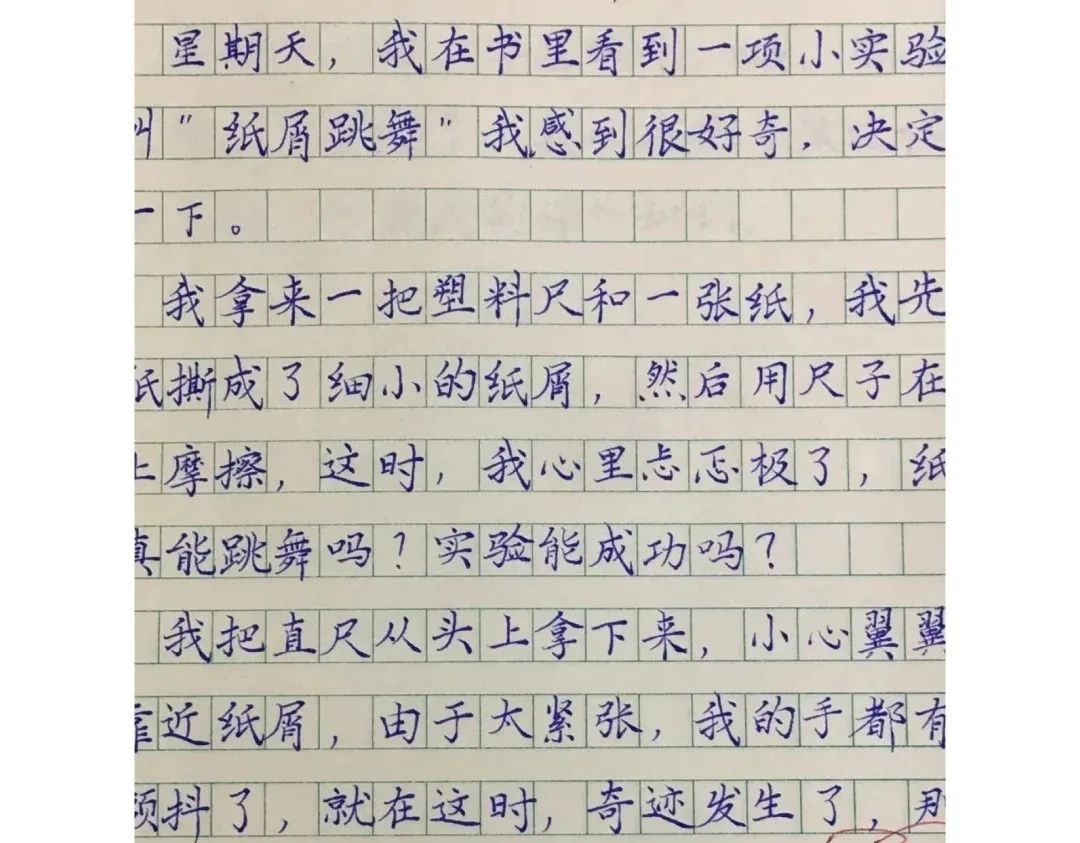 星期天，我在书里看到一项小实验
叫"纸屑跳舞"我感到很好奇，决定
一下。
我拿来一把塑料尺和一张纸，我先
纸撕成了细小的纸屑，然后用尺子在
上摩擦，这时，我心里忐忑极了，纸
真能跳舞吗？实验能成功吗？
我把直尺从头上拿下来，小心翼翼
靠近纸屑，由于太紧张，我的手都有
颤抖了，就在这时，奇迹发生了，那